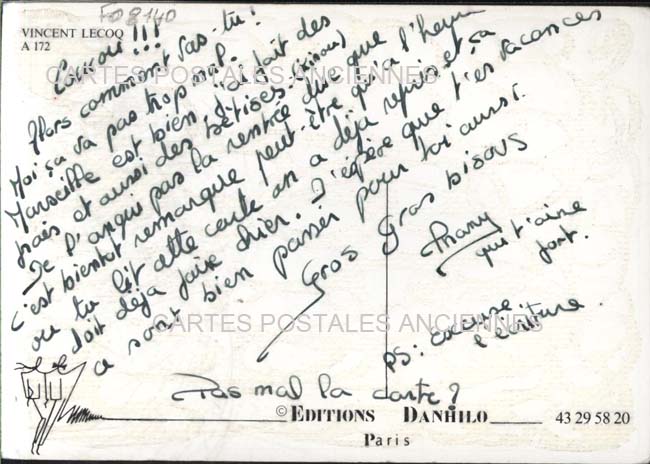 FO 8140
VINCENT LECOQ
A 172
Coucou!!!
Alors comment vas-tu?
Moi ça va pas trop mal.
Marseille est bien, j'ai fait des
frais et aussi des bétises. (bisous)
Je l'angui pas la rentrée dis que
c'est bientot remarque peut-être qu'à l'heure
ou tu lit cette carte on a déja repris et ça
doit déja faire chier. J'éspère que t'es vacances
ce sont bien passer pour toi aussi.
Gros Gros bisous
Phany
qui t'aime
fort.
PS: excuse
l'écriture.
Pas mal la carte?
CARTES POSTALES ANCIENNES
CARTES POSTALES ANCIENNES
© EDITIONS DANHILO 43 29 58 20
Paris